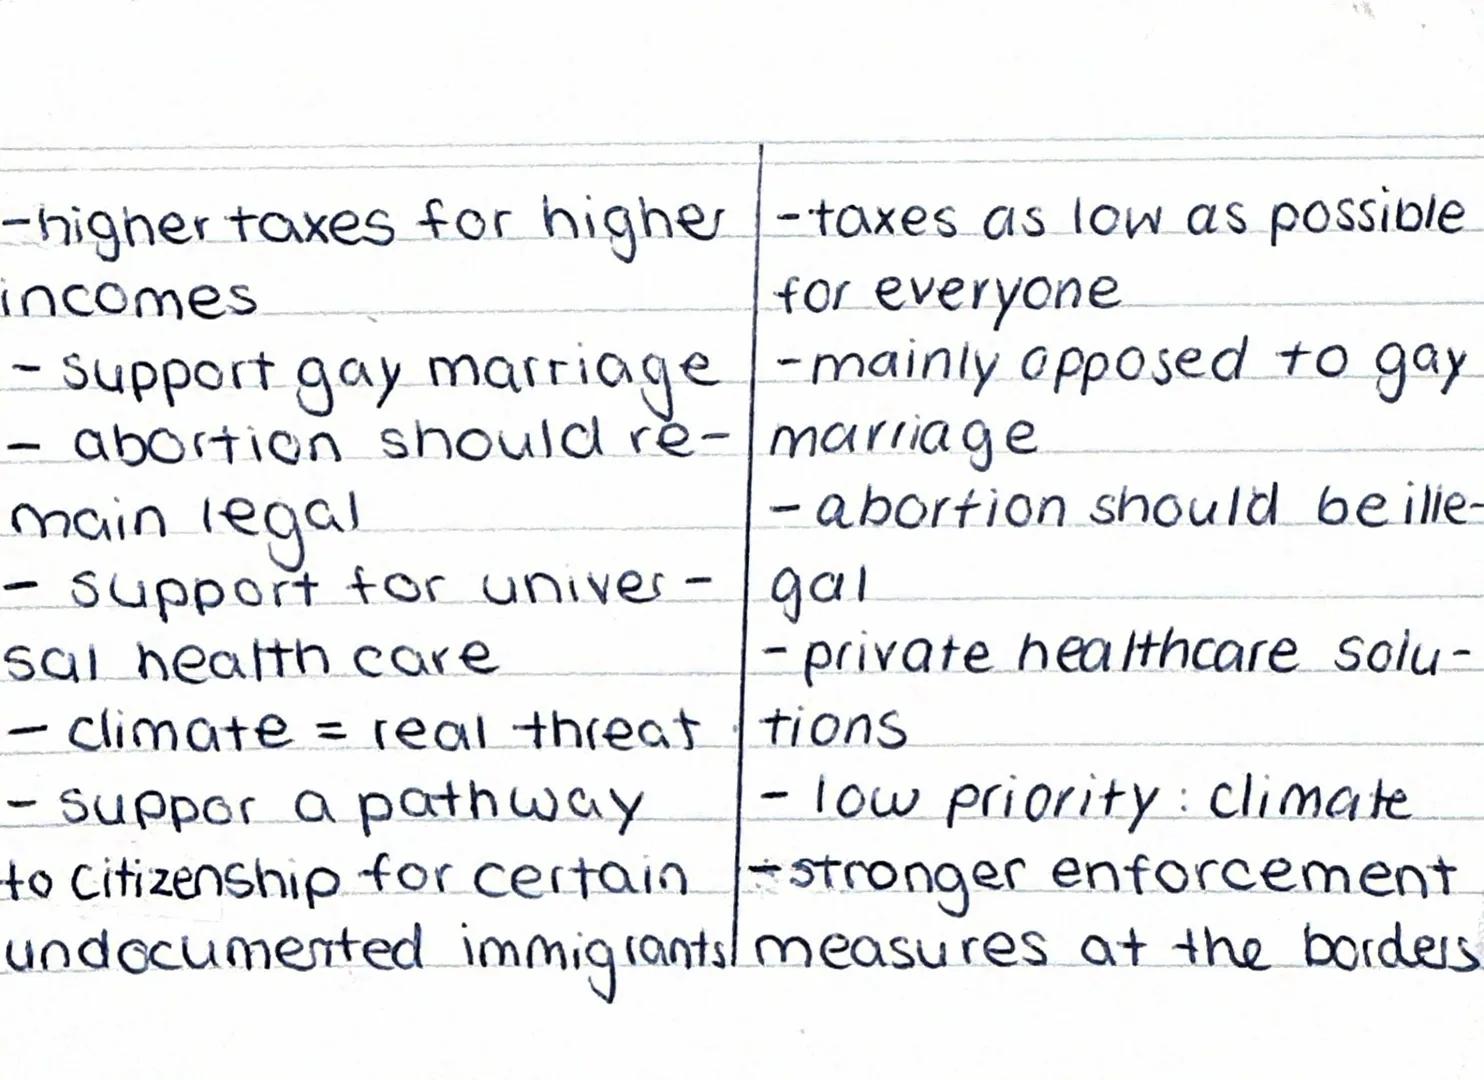 -higher taxes for higher
incomes
- support gay marriage
- abortion should re-
main legal
- support for univer-
sal health care
- climate = real threat
- suppor a pathway
to citizenship for certain
undocumented immigrants
-taxes as low as possible
for everyone
-mainly opposed to gay
marriage
- abortion should be ille-
gal
- private healthcare solu-
tions
- low priority: climate
- stronger enforcement
measures at the borders